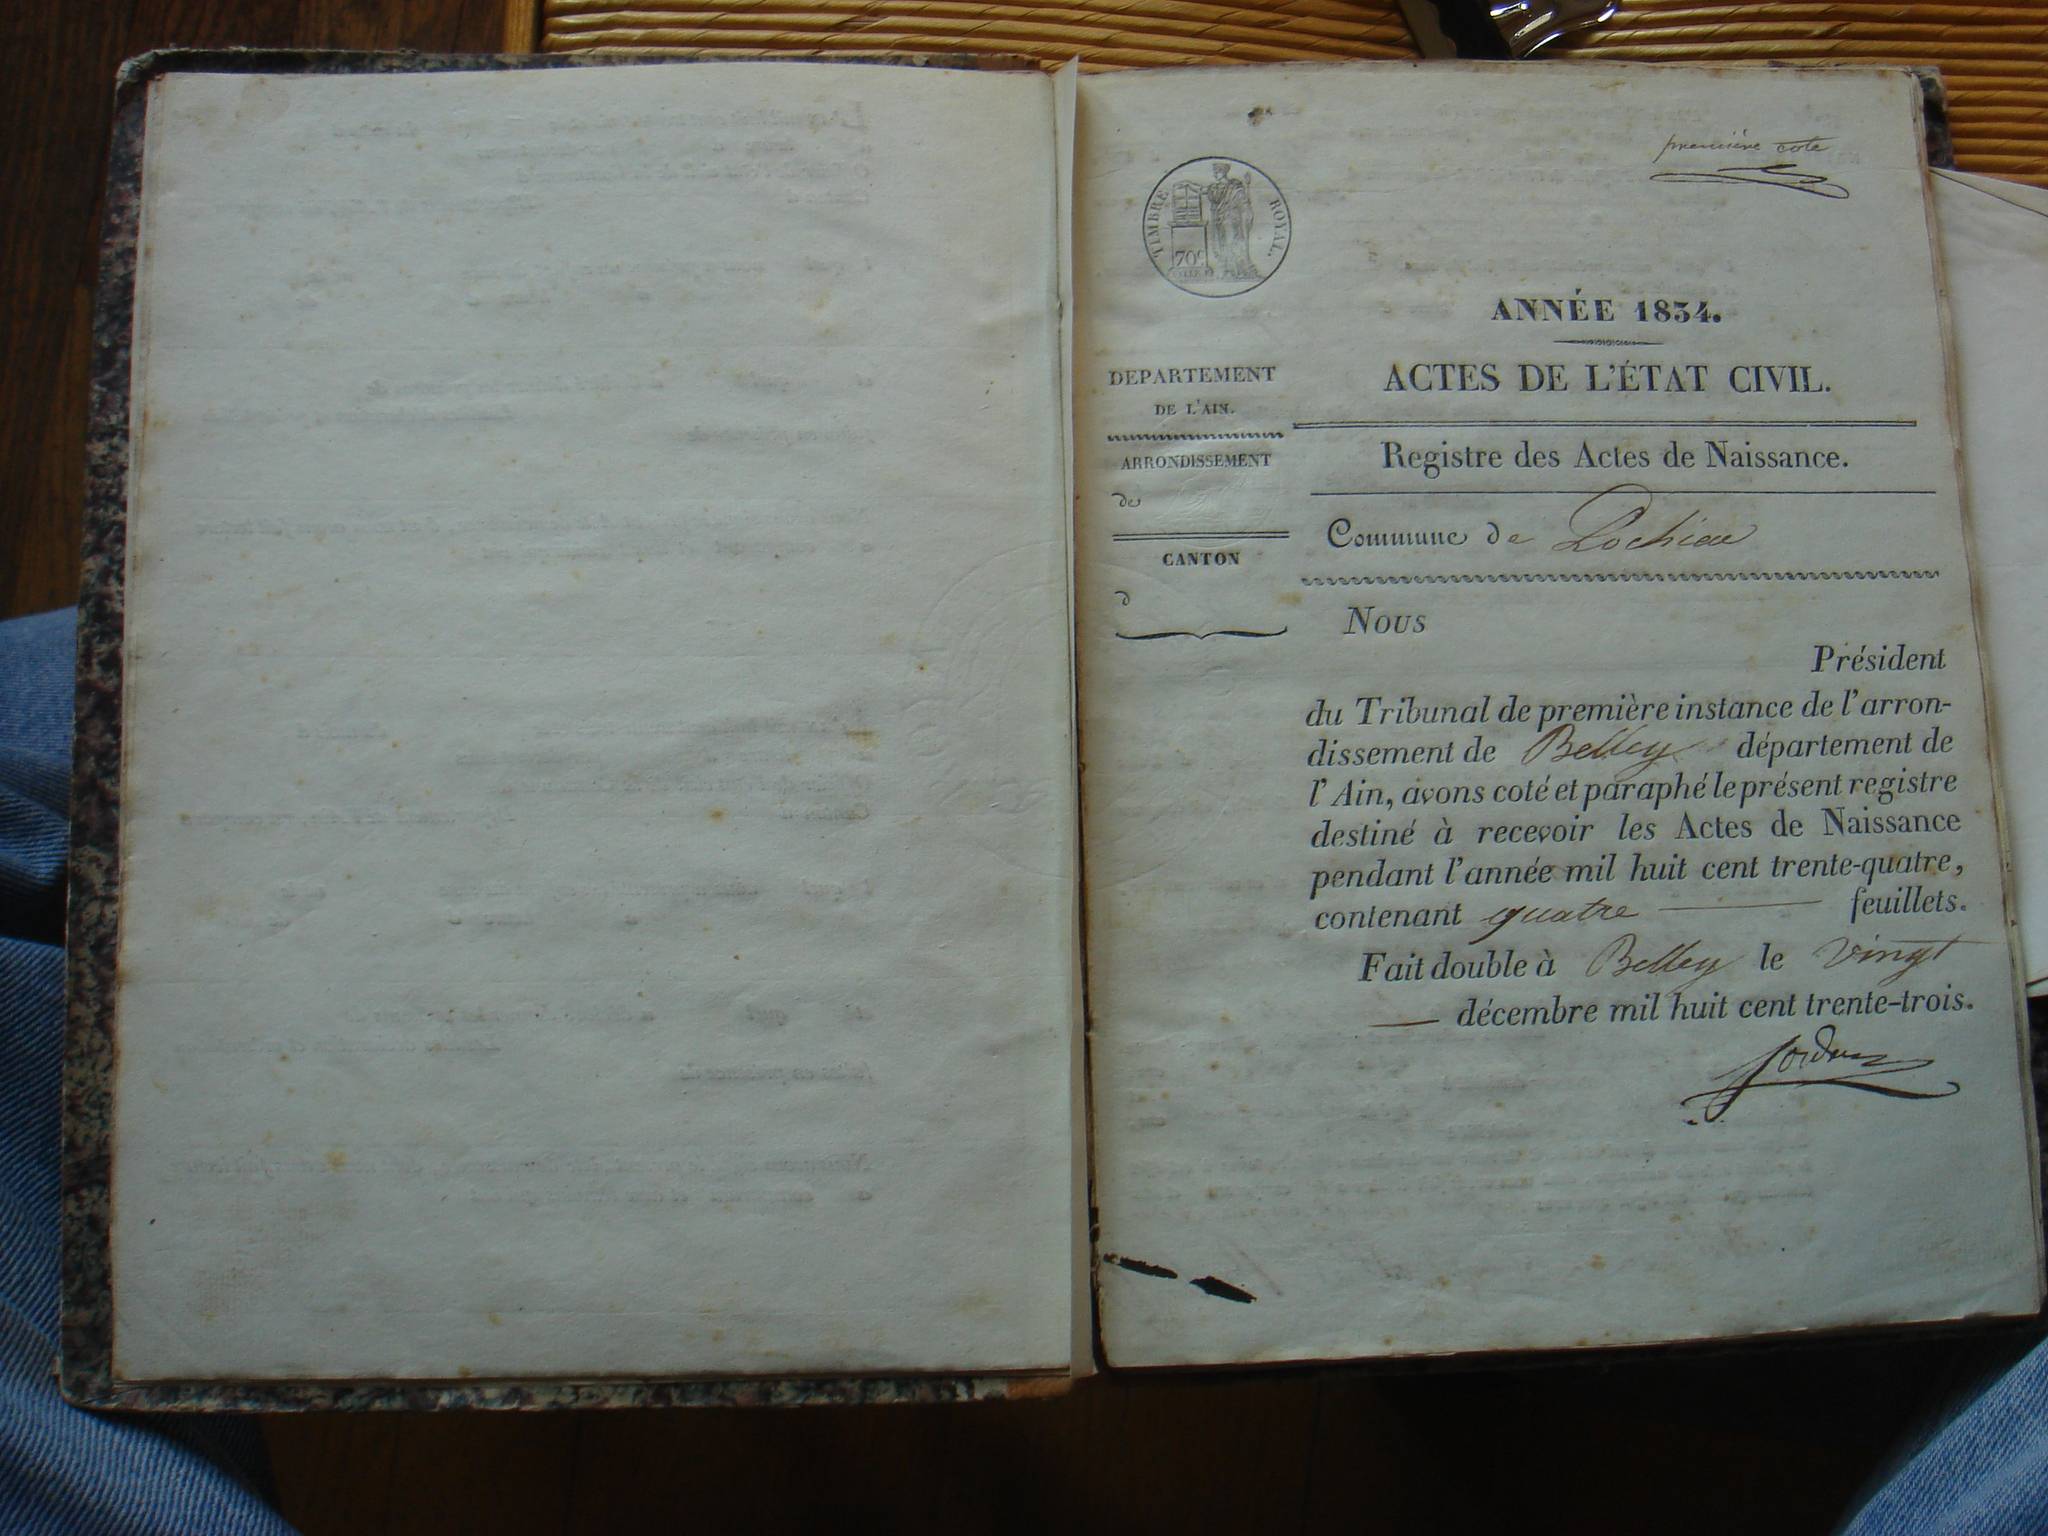 première cote
TIMBRE ROYAL.
70c
ANNÉE 1834.
ACTES DE L'ÉTAT CIVIL.
Registre des Actes de Naissance.
Commune de Lochieu
DEPARTEMENT
DE L'AIN.
ARRONDISSEMENT
de
CANTON
d
Nous
Président
du Tribunal de première instance de l'arron-
dissement de Belley département de
l'Ain, avons coté et paraphé le présent registre
destiné à recevoir les Actes de Naissance
pendant l'année mil huit cent trente-quatre,
contenant quatre feuillets.
Fait double à Belley le vingt
décembre mil huit cent trente-trois.